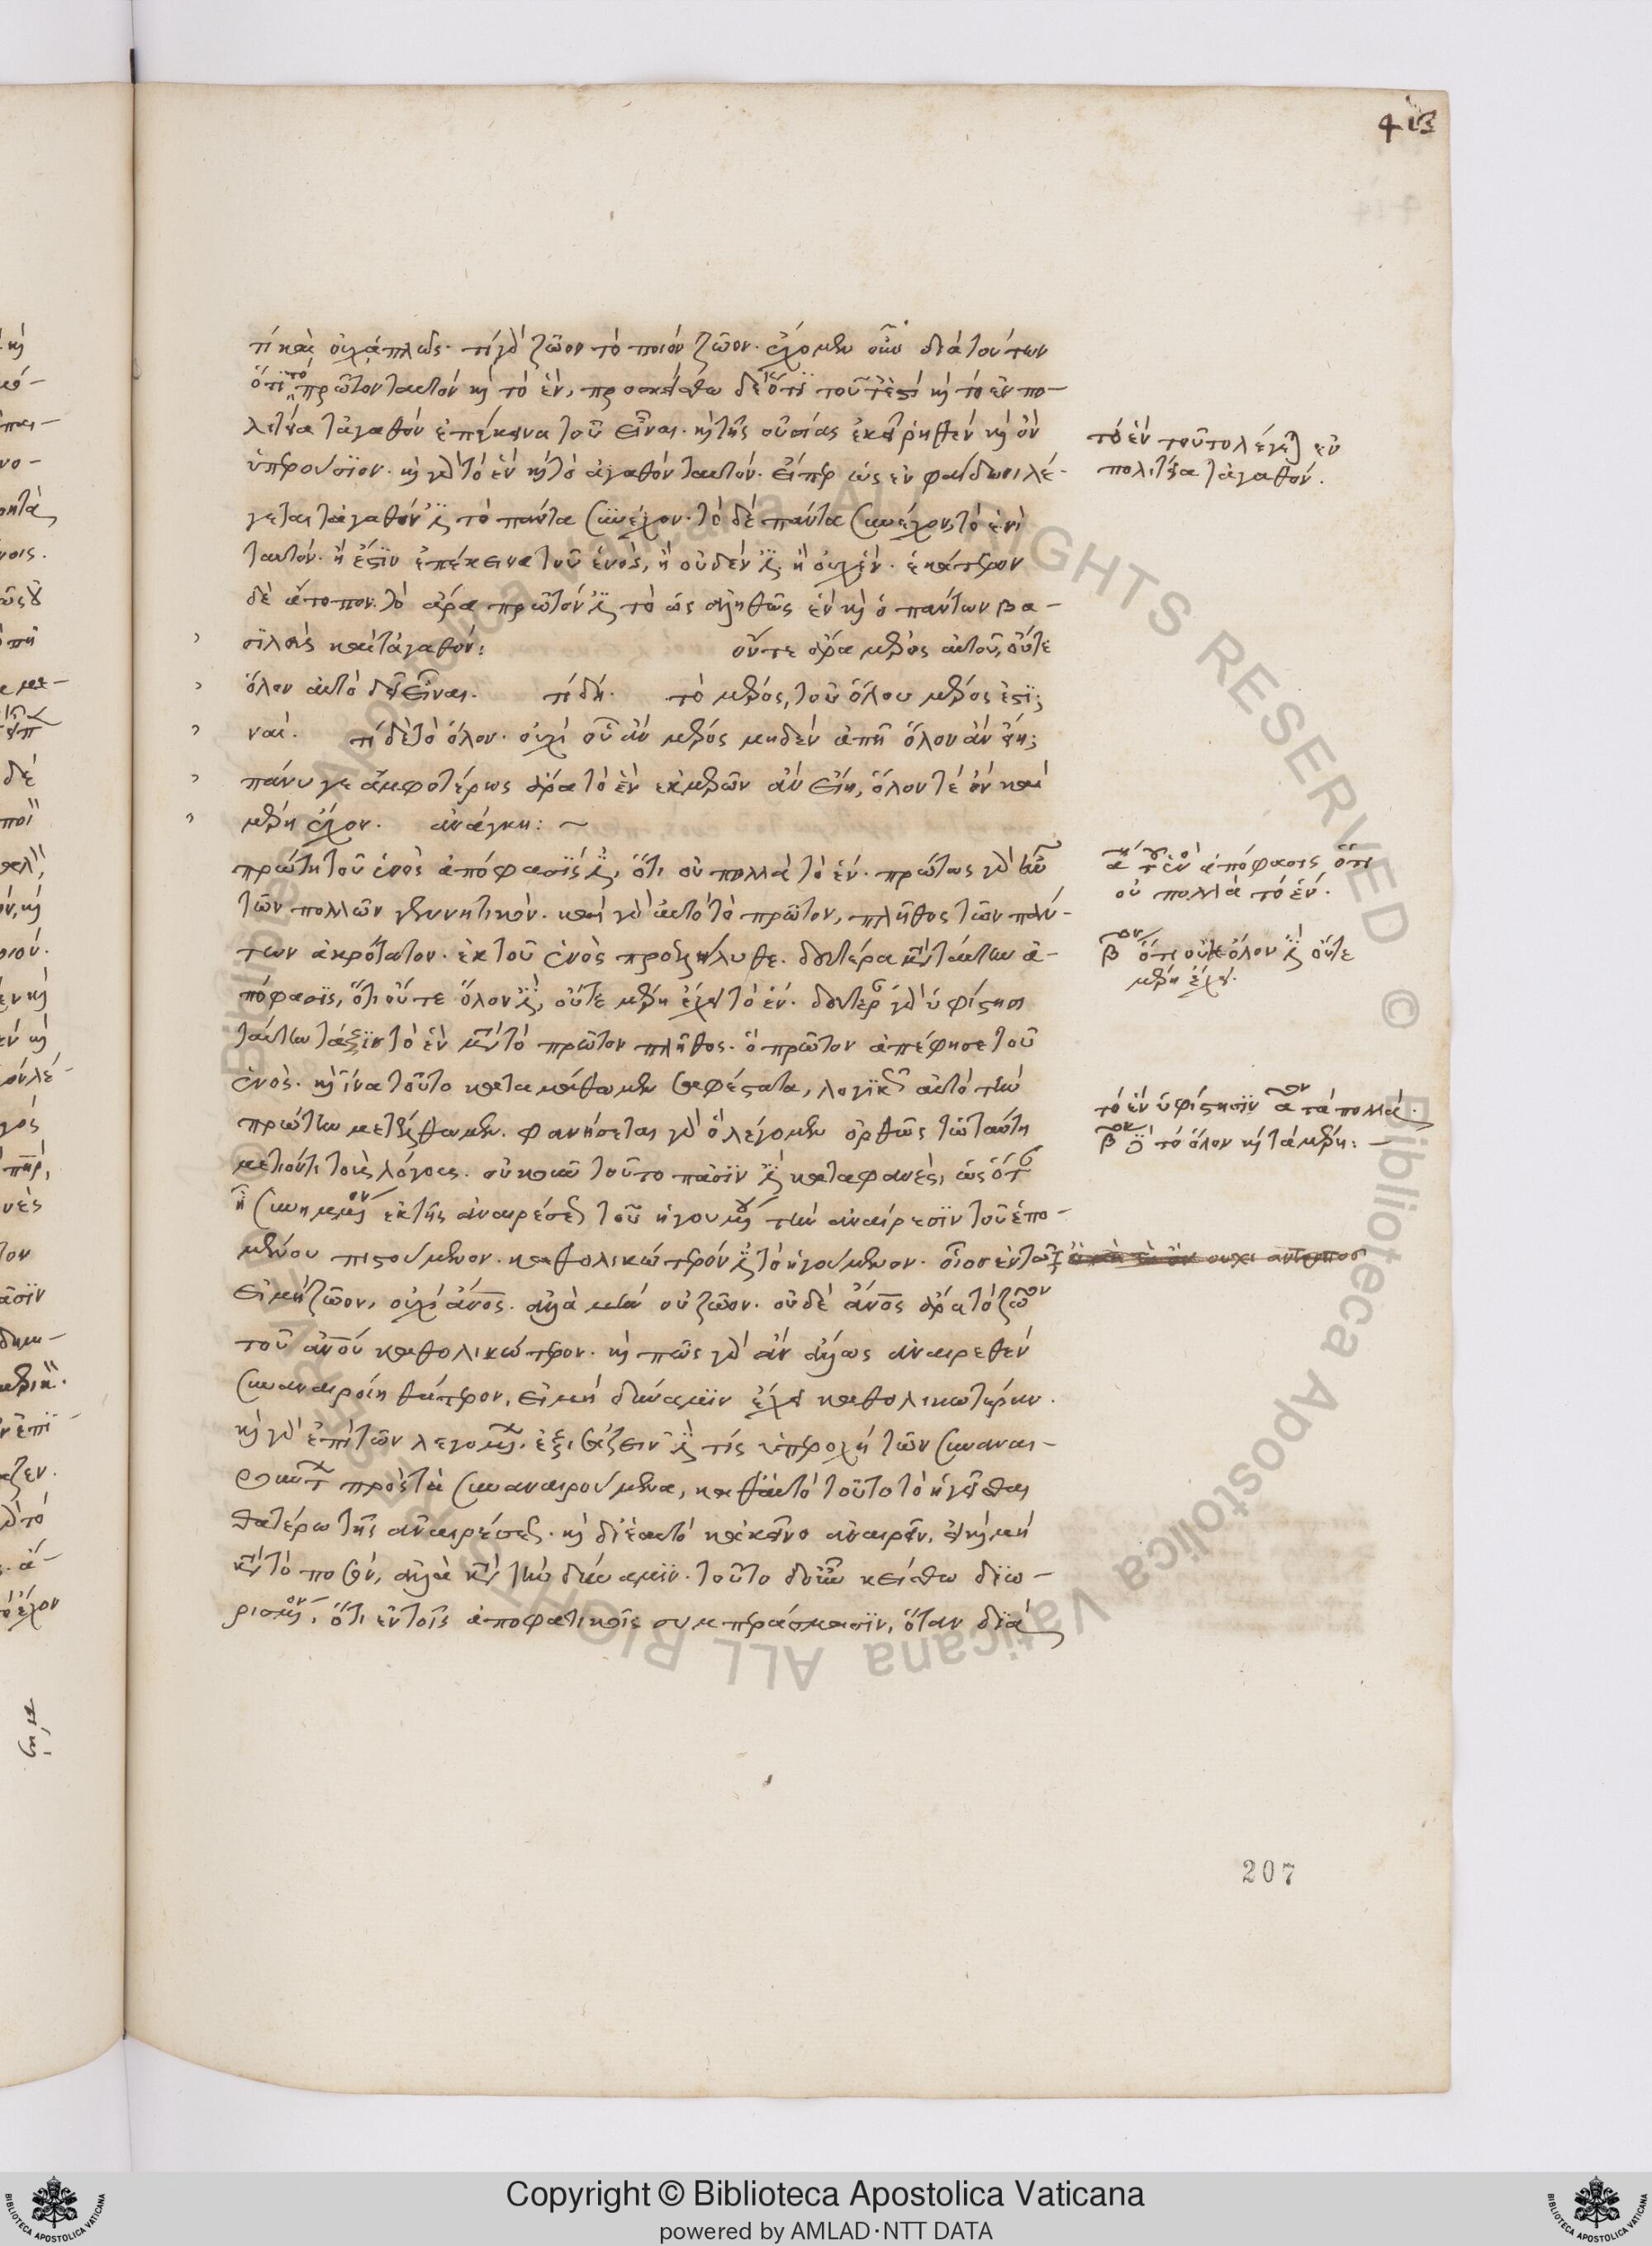 413
τί καὶ οὐχ ἁπλῶς. τί γὰρ ζῷον τὸ ποιὸν ζῷον. ἔχομεν οὖν διὰ τούτων
ὅτι τὸ πρῶτον ταυτὸν καὶ τὸ ἕν, προσκείσθω δὲ ὅτι τοῦτ ἐστὶ καὶ τὸ ἐν πο-
λιτεία τἀγαθὸν ἐπέκεινα τοῦ εἶναι. καὶ τῆς οὐσίας ἐκεῖ ῥηθὲν καὶ ὂν
ὑπερούσιον. καὶ γὰρ τὸ ἓν καὶ τὸ ἀγαθὸν ταυτόν. εἴπερ ὡς ἐν φαίδωνι λέ-
γεται τἀγαθόν ἐστι τὸ πάντα συνέχον. τὸ δὲ πάντα συνέχον, τὸ ἑνὶ
ταυτόν. ἢ ἔστιν ἐπέκεινα τοῦ ἑνὸς, ἢ οὐδέν ἐστι ἢ οὐχ ἕν. ἑκάτερον
δὲ ἄτοπον. τὸ ἄρα πρῶτόν ἐστι τὸ ὡς ἀληθῶς ἓν καὶ ὁ πάντων βα-
σιλεὺς καὶ τἀγαθόν: οὔτε ἄρα μέρος αὐτοῦ, οὔτε
ὅλον αὐτὸ δεῖ εἶναι. τί δή. τὸ μέρος, τοῦ ὅλου μέρος ἐστί;
ναί. τί δὲ τὸ ὅλον. οὐχὶ οὗ ἂν μέρος μηδὲν ἀπῇ ὅλον ἂν εἴη;
πάνυ γε ἀμφοτέρως ἄρα τὸ ἓν ἐκ μερῶν ἂν εἴη, ὅλον τέ ὂν καὶ
μέρη ἔχον. ἀνάγκη: ~
πρώτη τοῦ ἑνὸς ἀπόφασίς ἐστι, ὅτι οὐ πολλὰ τὸ ἕν. πρώτως γὰρ ἦν
τῶν πολλῶν γεννητικόν. καὶ γὰρ αὐτὸ τὸ πρῶτον, πλῆθος τῶν πάν-
των ἀκρότατον. ἐκ τοῦ ἑνὸς προεληλυθε. δευτέρα μετὰ ταύτην ἀ-
πόφασις, ὅτι οὔτε ὅλον ἐστι, οὔτε μέρη ἔχει τὸ ἕν. δευτέραν γὰρ ὑφίστησι
ταύτην τάξιν τὸ ἓν μετὰ τὸ πρῶτον πλῆθος. ὃ πρῶτον ἀπέφησε τοῦ
ἑνός. καὶ ἵνα τοῦτο καταμάθωμεν σαφέστατα, λογικῶς αὐτὸ τὴν
πρώτην μετέλθωμεν. φανήσεται γὰρ ὃ λέγομεν ὀρθῶς τῷ ταύτῃ
μετιόντι τοὺς λόγους. οὐκοῦν τοῦτο πᾶσίν ἐστι καταφανὲς, ὡς ὅταν
ᾖ συνημμένον ἐκ τῆς ἀναιρέσεως τοῦ ἡγουμένου τὴν ἀναίρεσιν τοῦ ἑπο-
μένου πιστούμενον. καθολικώτερόν ἐστι τὸ ἡγούμενον. οἷος ἐν τῷ
εἰ μὴ ζῷον, οὐχὶ ἄνος. ἀλλὰ μὴν οὐ ζῷον. οὐδὲ ἄνος ἄρα τὸ ζῷον
τοῦ ἀνου καθολικώτερον. καὶ πῶς γὰρ ἂν ἄλλως ἀναιρεθὲν
συναναιροίη θάτερον, εἰ μὴ δύναμιν ἔχει καθολικωτέραν.
καὶ γὰρ ἐπὶ τῶν λεγομένων ἐξισάζειν ἐστι τίς ὑπεροχὴ τῶν συναναι-
ρούντων πρὸς τὰ συναναιρούμενα, καθ αὐτὸ τοῦτο τὸ ἡγεῖσθαι
θατέρω τῆς ἀναιρέσεως. καὶ δι ἑαυτὸ κἀκεῖνο ἀναιρεῖν, εἰ καὶ μὴ
κατὰ τὸ ποσόν, ἀλλὰ κατὰ τὴν δύναμιν. τοῦτο δ οὖν κείσθω διω-
ρισμένον, ὅτι ἐν τοῖς ἀποφατικοῖς συμπεράσμασιν, ὅταν διὰ
τὸ ἓν τοῦτο λέγεται ἐν
πολιτεία τἀγαθόν.
α τοῦ ἑνὸς ἀπόφασις ὅτι
οὐ πολλὰ τὸ ἕν.
β ὅτι οὐχ ὅλον ἐστι οὔτε
μέρη ἔχει.
τὸ ἓν ὑφίστησιν α τὰ πολλά.
β τὸ ὅλον καὶ τὰ μέρη: -
ουχι ανθρωποσ
207
Copyright © Biblioteca Apostolica Vaticana
powered by AMLAD·NTT DATA
© Biblioteca Apostolica Vaticana ALL RIGHTS RESERVED